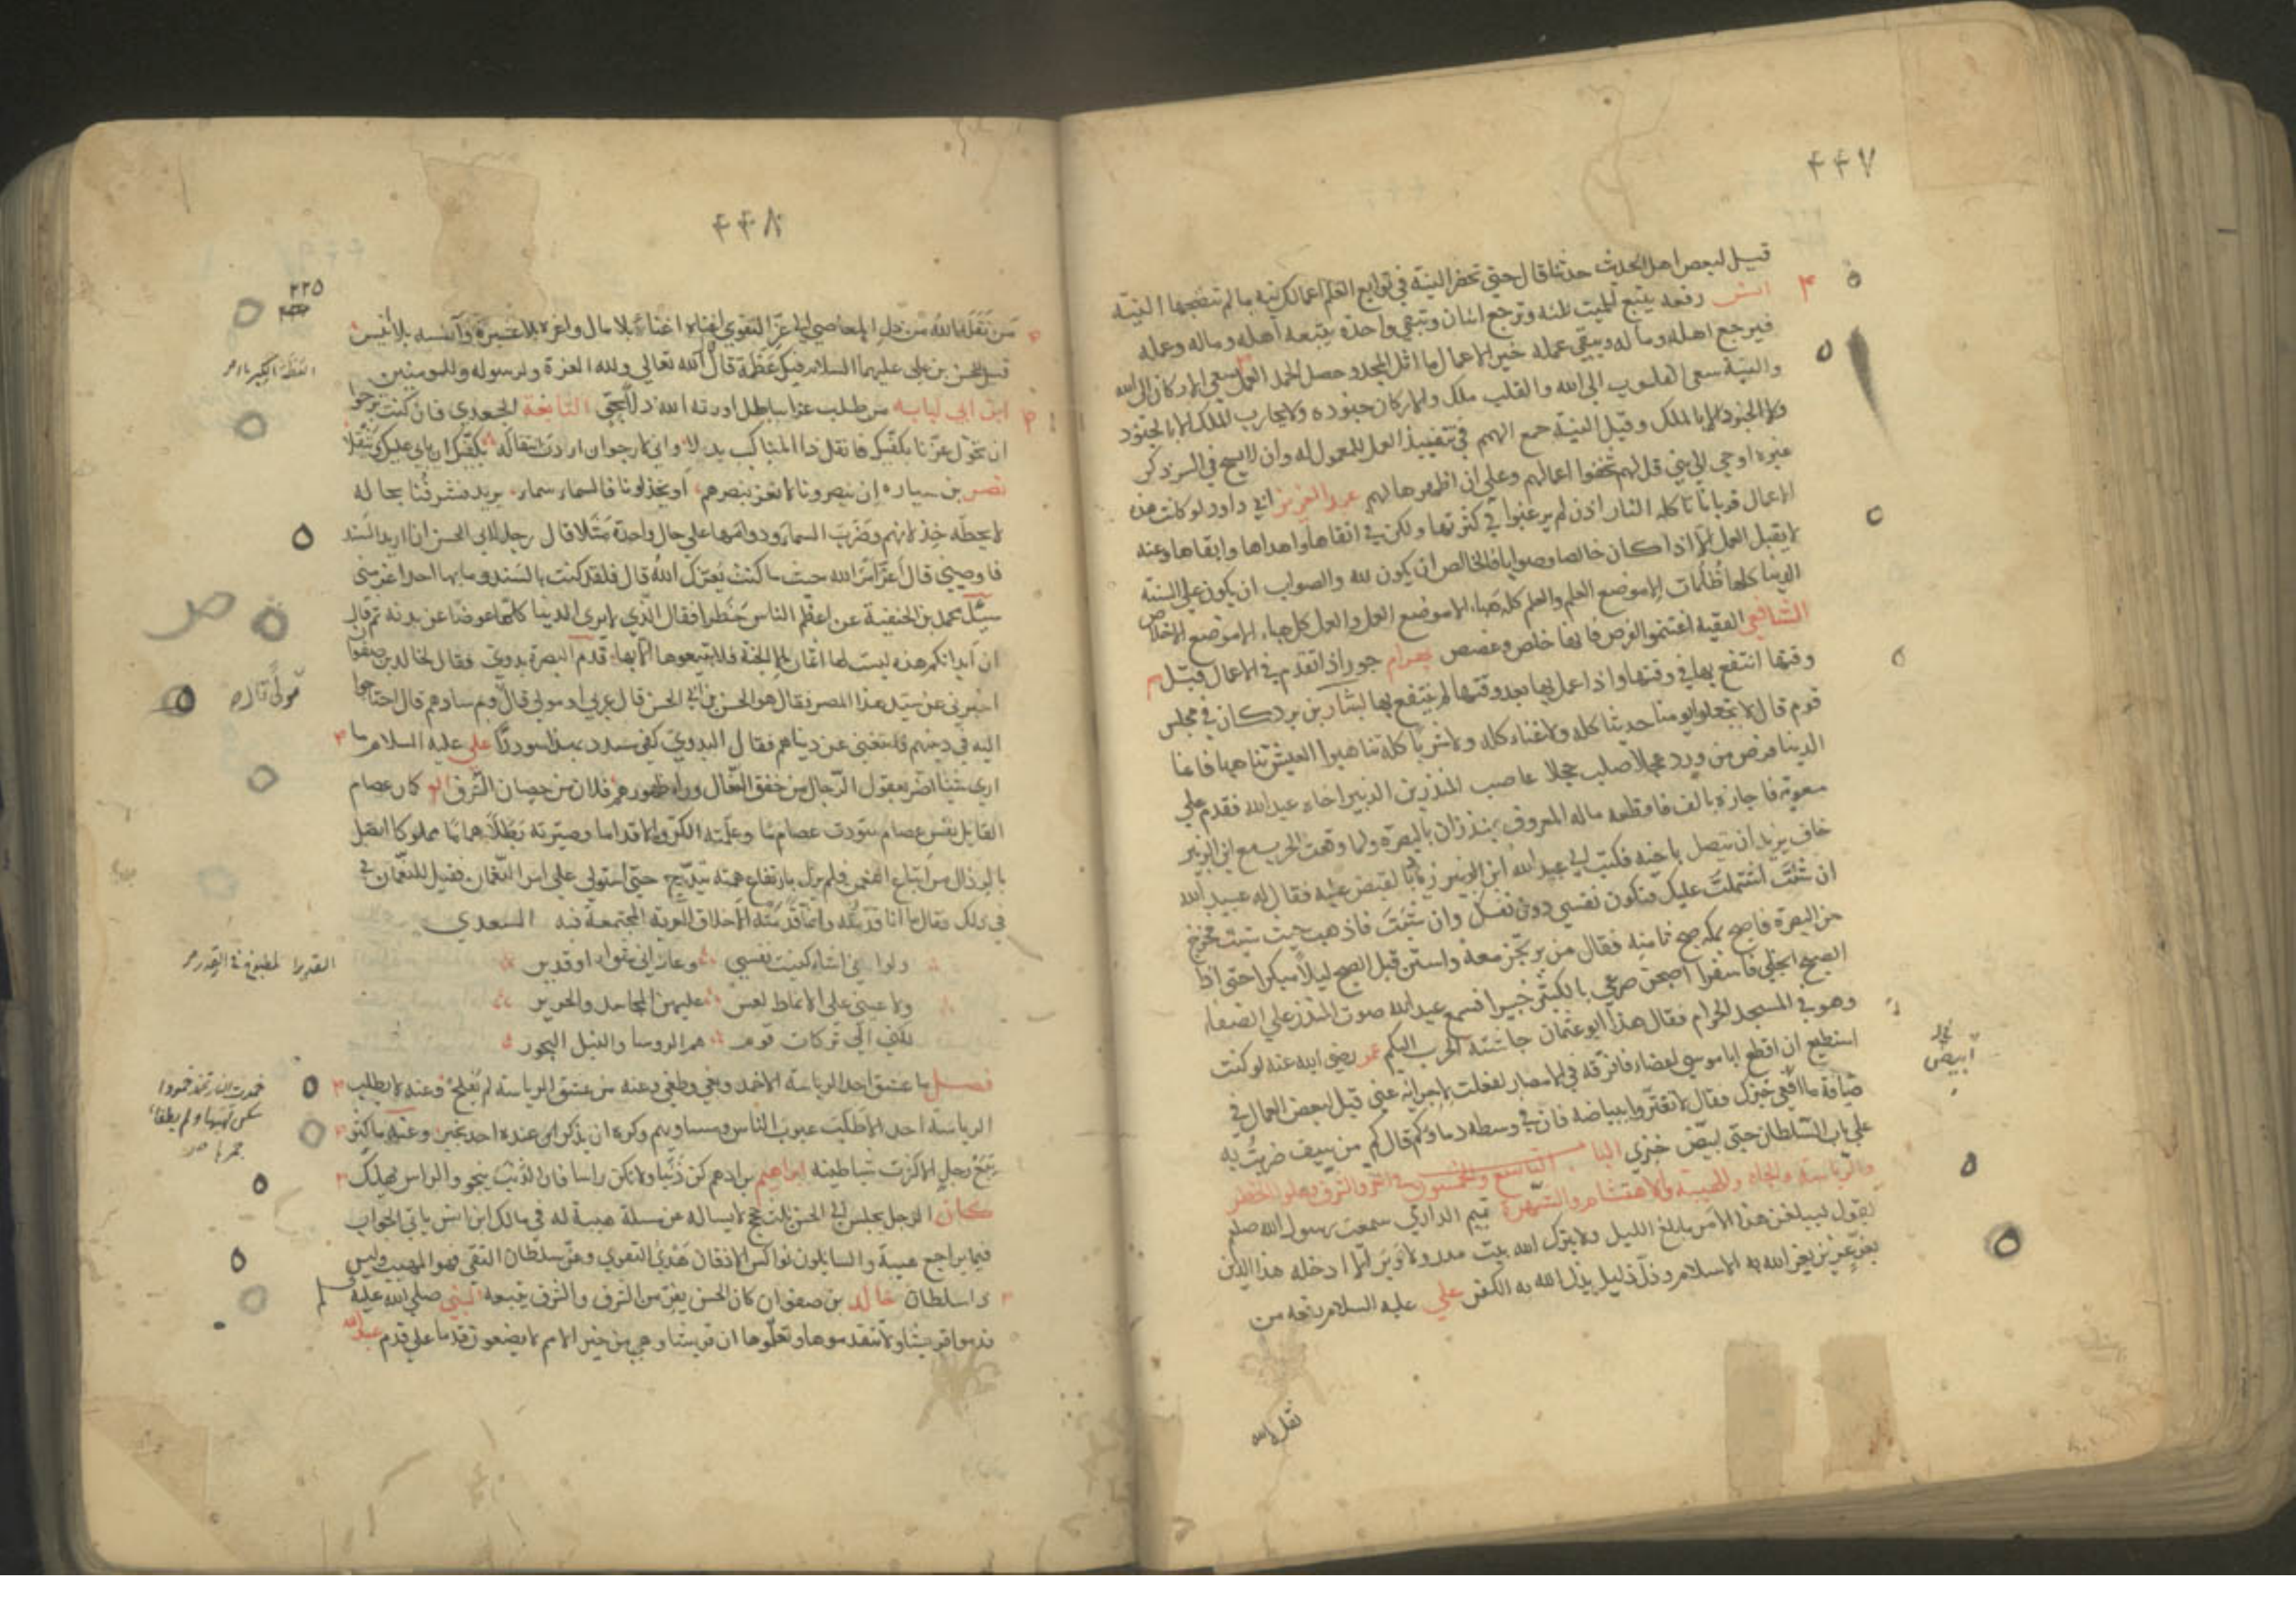 ٤٤٧
قيل لبعض اهل الحديث حدثنا قال حتى تحضر النية في توابع العلم اعمالك نية ما لم تفضحها النية
انس رفعه يتبع الميت ثلثه وترجع اثنان وتبقى واحدة يتبعه اهله وماله وعمله
فيرجع اهله وماله ويبقى عمله خير الاعمال ما اثل المجد وحصل الحمد العمل سعى الاركان الى الله
والنية سعى القلوب الى الله والقلب ملك والاركان جنوده ولا يحارب الملك الا بالجنود
ولا الجنود الا بالملك وقيل النية جمع الهم في تنفيذ العمل للمعمول له وان لا يسبح في السر ذكر
غيره اوحي الى نبي قل لهم تخفوا اعمالهم وعلى ان اظهرها لهم عبد العزيز ابي داود لو كانت هذه
الاعمال قربانا تأكله النار اذن لم يرغبوا في كثرتها ولكن في انقاها واهداها وابقاها وعنه
لا يقبل العمل الا اذا كان خالصا وصوابا فالخالص ان يكون لله والصواب ان يكون على السنة
الدنيا كلها ظلمات الا موضع العلم والعلم كله هباء الا موضع العمل والعمل كل هباء الا موضع الاخلاص
الشافعي الفقيه اغتنموا الفرص فانها خلص وغصص بهرام جور اذا تقدم في الاعمال قبل
وقتها انتفع بها في وقتها واذا عمل بها بعد وقتها لم ينتفع بها بشار بن برد كان في مجلس
قوم قال لا تجعلوا يومنا حديثا كله ولا غناء كله ولا شربا كله تناهبوا العيش تناهبا فانما
الدنيا فرص من ورد عجلا صلب عجلا غاصب المنذر بن الزبير اخاه عبد الله فقدم على
معوية فاجازه بالف فاقطعه ماله المعروف بمنذران بالبصرة ولما وقعت الحرب مع ابن الزبير
خاف يزيد ان يتصل باخيه فكتب الى عبيد الله ابن زياد ليقبض عليه فقال له عبيد الله
ان شئت اشتملت عليك فتكون نفسي دون نفسك وان شئت فاذهب حيث شئت فخرج
من البصرة فاصبح بمكة صبح ثامنة فقال من يرتجز معه واستن قبل الصبح ليلا مبكرا حتى اذا
الصبح انجلى فاسفرا اصبحن صرعى بالكثيب خسرا فسمع عبد الله صوت المنذر على الصفا
وهو في المسجد الحرام فقال هذا ابو عثمان جاشته الحرب اليكم عمر رضي الله عنه لو كنت
استطيع ان اقطع ابا موسى اعضاء فافرقه في الامصار لفعلت لاجزائه عني قيل لبعض العمال في
ضيافة ما انقى خبزك فقال لا تغتروا ببياضه فان في وسطه دماؤكم قال كم من سيف ضربت به
على باب السلطان حتى ابيض خبزي الباب التاسع والخمسون في العز والشرف وعلو الخطر
والرياسة والجاه والهيبة والاحتشام والشهرة تميم الداري سمعت رسول الله صلعم
يقول ليبلغن هذا الامر ما بلغ الليل ولا يترك الله بيت مدر ولا وبر الا ادخله هذا الدين
بعز عزيز يعز الله به الاسلام وذل ذليل يذل الله به الكفر علي عليه السلام رفعه من
ابيض
نقله الله
٤٤٨
٢٢٥
من نقله الله من ذل المعاصي الى عز التقوى اغناه بلا مال واعزه بلا عشيرة وآنسه بلا انيس
قيل للحسن بن علي عليهما السلام فيك عظمة قال الله تعالى ولله العزة ولرسوله وللمومنين
ابن ابي لبابه من طلب عزا بباطل اورثه الله ذلا بحق النابغة الجعدي فان كنت ترجوا
ان تحول عزنا بكفيك فانقل ذا المناكب يذبلا واني لارجو ان اردت انتقاله بكفيك ان يابى عليك وتثقلا
نصر بن سياره ان ينصرونا لا نعز بنصرهم او يخذلونا فالسماء سماء يريد فشرفنا بحاله
لا يحطه خذلانهم وضرب السماء ودوامها على حال واحدة مثلا قال رجل لابي الحسن انا اريد السند
فاوصيني قال اعز امر الله حيث ما كنت يعزك الله قال فلقد كنت بالسند وما بها احد اعز مني
سئل محمد بن الحنفية عن اعظم الناس خطرا فقال الذي لا يرى الدنيا كلها عوضا عن بدنه ثم قال
ان ابدانكم هذه ليست لها اثمان الا الجنة فلا تبيعوها الا بها قدم البصرة بدوي فقال لخالد بن صفوا
اخبرني عن سيد هذا المصر فقال هو الحسن بن ابي الحسن قال عربي او مولى قال مولى قال وبم سادهم قال احتاجوا
اليه في دينهم فاستغنى عن دنياهم فقال البدوي كفى سودد بهذا سوددا علي عليه السلام ما
ارى شيئا اضر بعقول الرجال من خفق النعال وراء ظهورهم فلان من حصان الشرف كان عصام
القايل نفس عصام سودت عصاما وعلمته الكر والاقداما وصيرته بطلا هماما مملوكا اتصل
بالرذال من اتباع النعمن فلم يزل بارتفاع همته يتدرج حتى استولى على امر النعمان فقيل للنعمان في
ذلك فقال ما انا قدمته وانما قدمته الاخلاق القوية المجتمعة فيه السعدي
ولو اني اشاء كننت نفسي وعاداني شواء او قدير
ولاعبني على الانماط لعس عليهن المجاسد والحرير
ولكني الى تركات قوم هم الروسا والنبل البحور
فصيل ما عشق احد الرياسة الا حسد وبغى وطغى وعنه من عشق الرياسة لم يفلح وعنه لا يطلب
الرياسة احد الا طلب عيوب الناس ومساويهم وكره ان يذكر عنده احد بخير وعنه ما كثر
تبع رجل الا كثرت شياطينه ابراهيم بن ادهم كن ذنبا ولا تكن راسا فان الذنب ينجو والراس يهلك
كان الرجل يجلس الى الحسن ثلث حجج لا يساله عن مسئلة هيبة له في مالك ابن انس يابى الجواب
فما يراجع هيبة والسايلون نواكس الاذقان هدي التقوى وعز سلطان التقى فهو المهيب وليس
ذا سلطان خالد بن صفوان كان الحسن يفر من الشرف والشرف يتبعه النبي صلى الله عليه وسلم
قدموا قريشا ولا تتقدموها وتعلموا ان قريشا وهي من خير الامم لا يضعون قدما على قدم عبد الله
العظمة الكبرياء
مولى قال
القدير المطبوخ في القدر
خمدت النار تخمد خمودا
سكن لهبها ولم يطفأ
جمرها